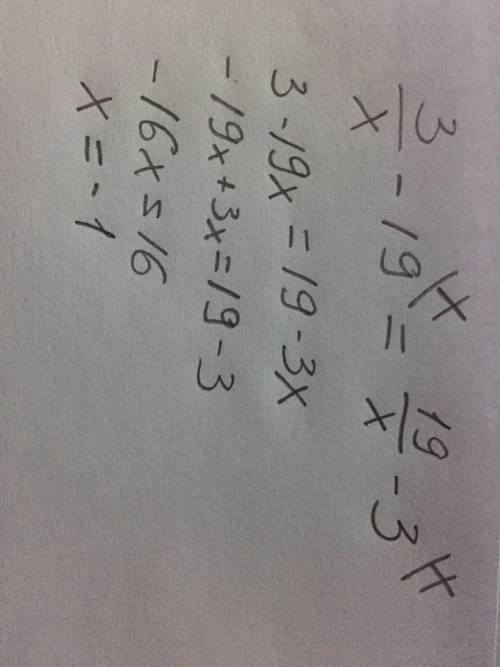 3/x - 19 \x = 19/x - 3 \x
3 - 19x = 19 - 3x
- 19x + 3x = 19 - 3
- 16x = 16
x = - 1